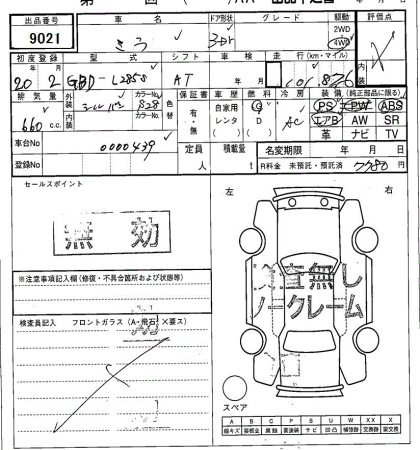 出品番号 車名 ドア形状 グレード 駆動 評価点
9021 ミラ 3Dr 2WD 4WD
初度登録 型式 シフト 車検 走行(km・マイル)
年 月 年 月
20 2 GBD-L285S AT
排気量 外装 カラーNo. 色替 保証書 車歴 燃料 冷房 装備(純正部品に限る)
シルバー S28 有・無 自家用 G AC PS PW ABS
660 c.c. 内装 カラーNo. レンタ D エアB AW SR
革 ナビ TV
車台No 0000439 定員 積載量 名変期限 年 月 日
登録No 人 t R料金 未預託・預託済 7780 円
セールスポイント
左 右
無効
※注意事項記入欄(修復・不具合箇所および状態等)
検査無し
ノークレーム
検査員記入 フロントガラス(A・飛石・×要ス)
スペア
A B C P S U W X XX